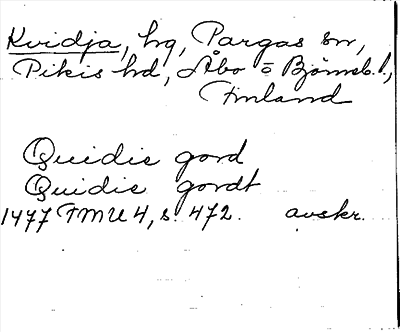 Kvidja, hg, Pargas sn,
Pikis hd, Åbo o Björneb. l.,
Finland
Quidis gord
Quidis gordt
1477 FMU 4, s. 472. avskr.